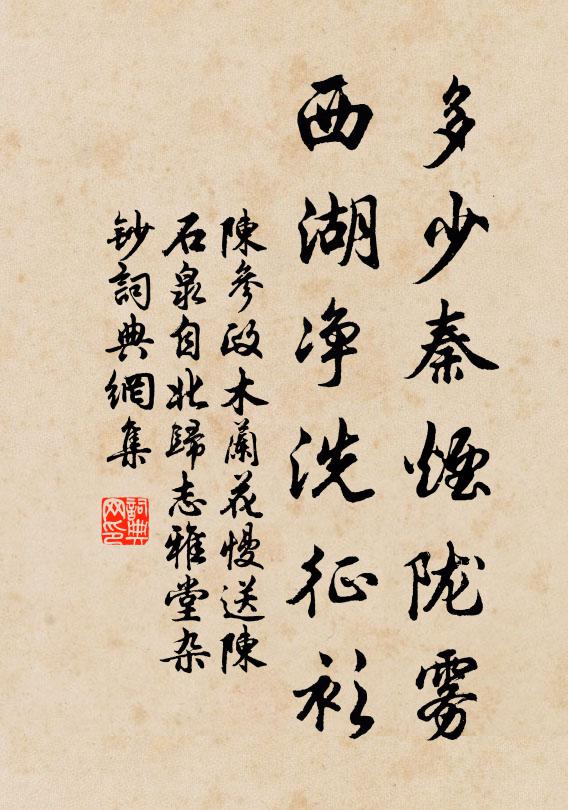 多少秦煙陇雾
西湖净洗征衫
陳參政木蘭花慢送陳
石泉自北歸志雅堂杂
鈔詞典網集
詞典网印